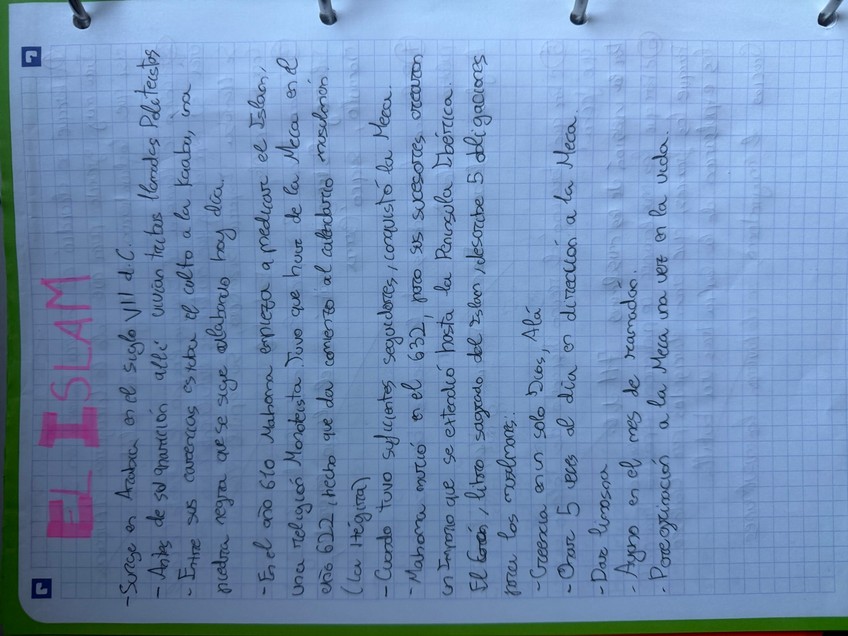 EL ISLAM
- Surge en Arabia en el siglo VII d.C.
- Antes de su aparición allí vivían tribus llamadas Politeistas
- Entre sus creencias estaba el culto a la Kaaba, una
piedra negra que se sigue adorando hoy día.
- En el año 610 Mahoma empieza a predicar el Islam,
una religión Monoteista. Tuvo que huir de la Meca en el
año 622, hecho que da comienzo al calendario musulmán
(La Hégira)
- Cuando tuvo suficientes seguidores, conquistó la Meca.
- Mahoma murió en el 632, pero sus sucesores crearon
un Imperio que se extendió hasta la Península Ibérica.
El Corán, libro sagrado del Islam, describe 5 obligaciones
para los musulmanes:
- Creencia en un solo Dios, Alá
- Orar 5 veces al día en dirección a la Meca.
- Dar limosna
- Ayuno en el mes de ramadán.
- Peregrinación a la Meca una vez en la vida.